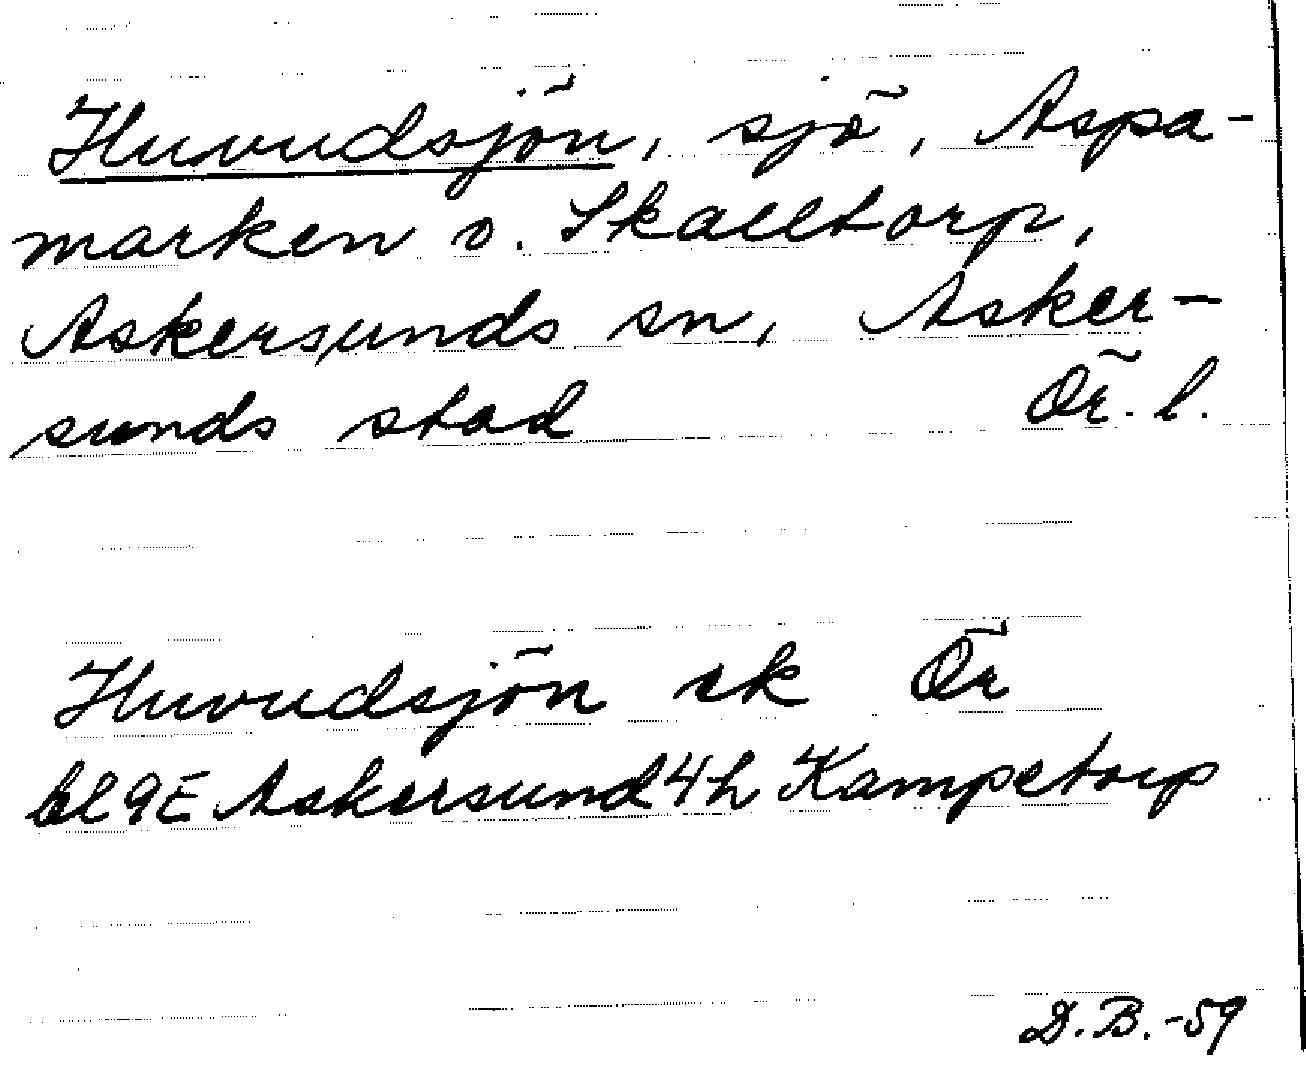 Huvudsjön, sjö, Aspa-
marken o. Skalltorp,
Askersunds sn, Asker-
sunds stad Ör. l.
Huvudsjön ek Ör
bl 9E Askersund 4h Kampetorp
D.B.-59